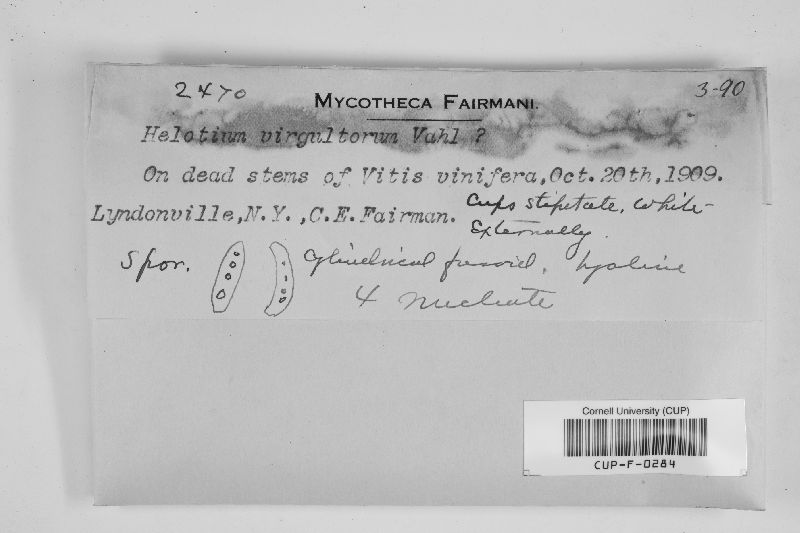 2470
3-90
MYCOTHECA FAIRMANI.
Helotium virgultorum Vahl ?
On dead stems of Vitis vinifera, Oct. 20th, 1909.
Lyndonville, N.Y., C.E. Fairman. Cups stipitate, white
Externally.
Spor. Cylindrical fusoid, hyaline
4 nucleate
Cornell University (CUP)
CUP-F-0284